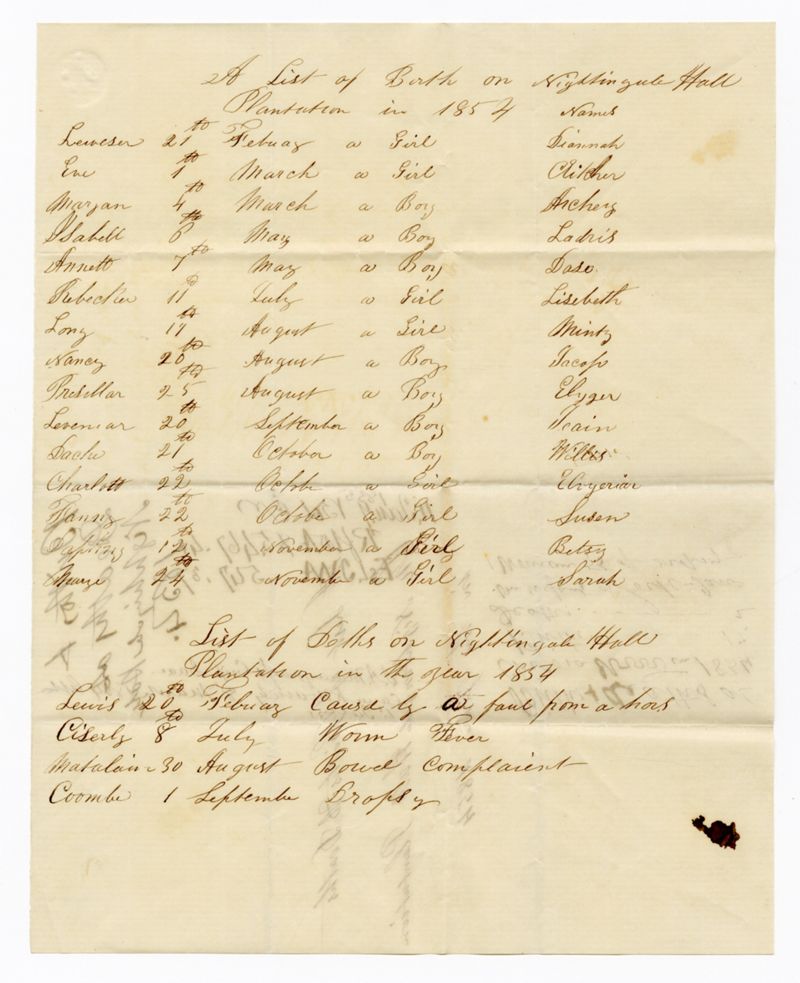 A List of Birth on Nightingale Hall
Plantation in 1854 Names
Leweser 21th Febuay a Girl Diannah
Eve 1th March a Girl
Maryan 4th March a Boy Archery
ISabell 6th May a Boy Ladris
Annett 7th May a Boy Dase
Rebecker 11 July a Girl Lisebeth
Long 17th August a Girl Minty
Nancy 20th August a Boy Jacop
Presillar 25th August a Boy Elyzer
Leveniar 20th September a Boy
21th October a Boy Willis
Charlott 22th Octobe a Girl Elvyeriar
Fanny 22th Octobe a Girl Susen
12th November a Girl Betsy
24th Novembe a Girl Sarah
List of Deths on Nightingale Hall
Plantation in the year 1854
Lewis 20th Febuay Causd by a faul from a hors
Ciserly 8th July Worm Fever
30 August Bowel complaient
Coombe 1 Septembe Dropsy